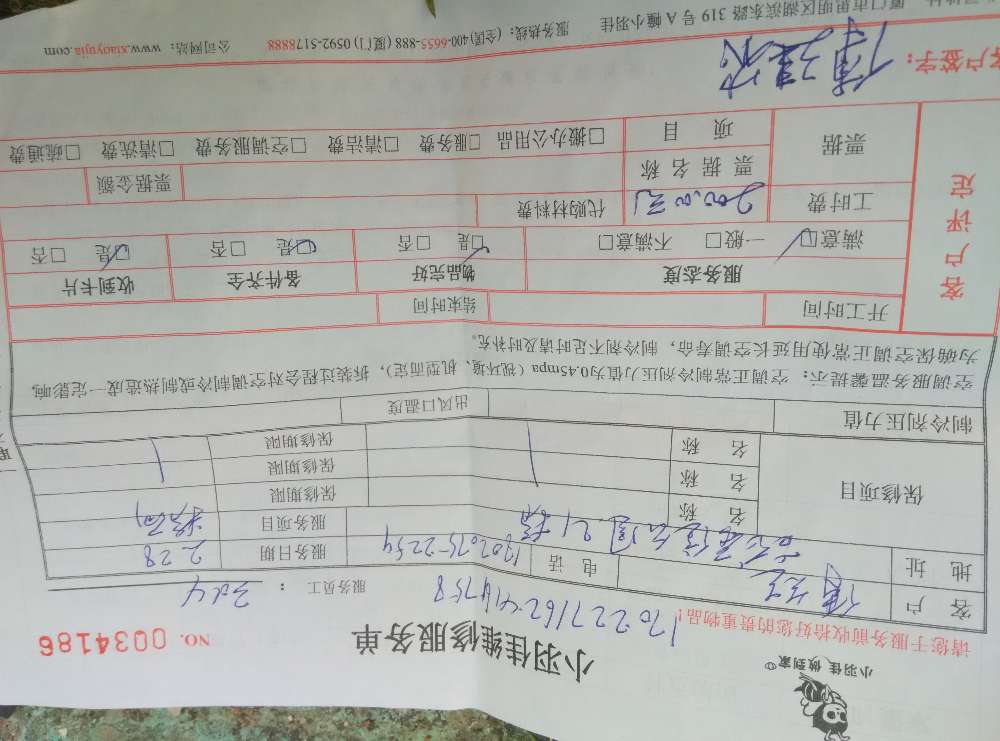 小羽佳 做到家
小羽佳维修服务单
NO. 0034186
请您于服务前收拾好您的贵重物品!
170227162414758
服务员工:
客户
电话
服务日期 2.28
地址
服务项目
保修项目
名称
保修期限
名称
保修期限
名称
保修期限
制冷剂压力值
出风口温度
空调服务温馨提示: 空调正常制冷剂压力值为0.45mpa(视环境、机型而定),拆装过程会对空调制冷或制热造成一定影响,
为确保空调正常使用延长空调寿命,制冷剂不足时请及时补充。
客户评定
开工时间
结束时间
服务态度
物品完好
备件齐全
收到卡片
满意☑ 一般□ 不满意□
☑是 □否
☑是 □否
☑是 □否
工时费
200.00元
代购材料费
票据
票据名称
票据金额
项目
□搬办公用品 □服务费 □清洁费 □空调服务费 □清洗费 □疏通费
客户签字:
厦门市思明区湖滨东路 319 号 A 幢小羽佳
服务热线: (全国)400-6655-888 (厦门) 0592-5178888
公司网站: www.xiaoyujia.com